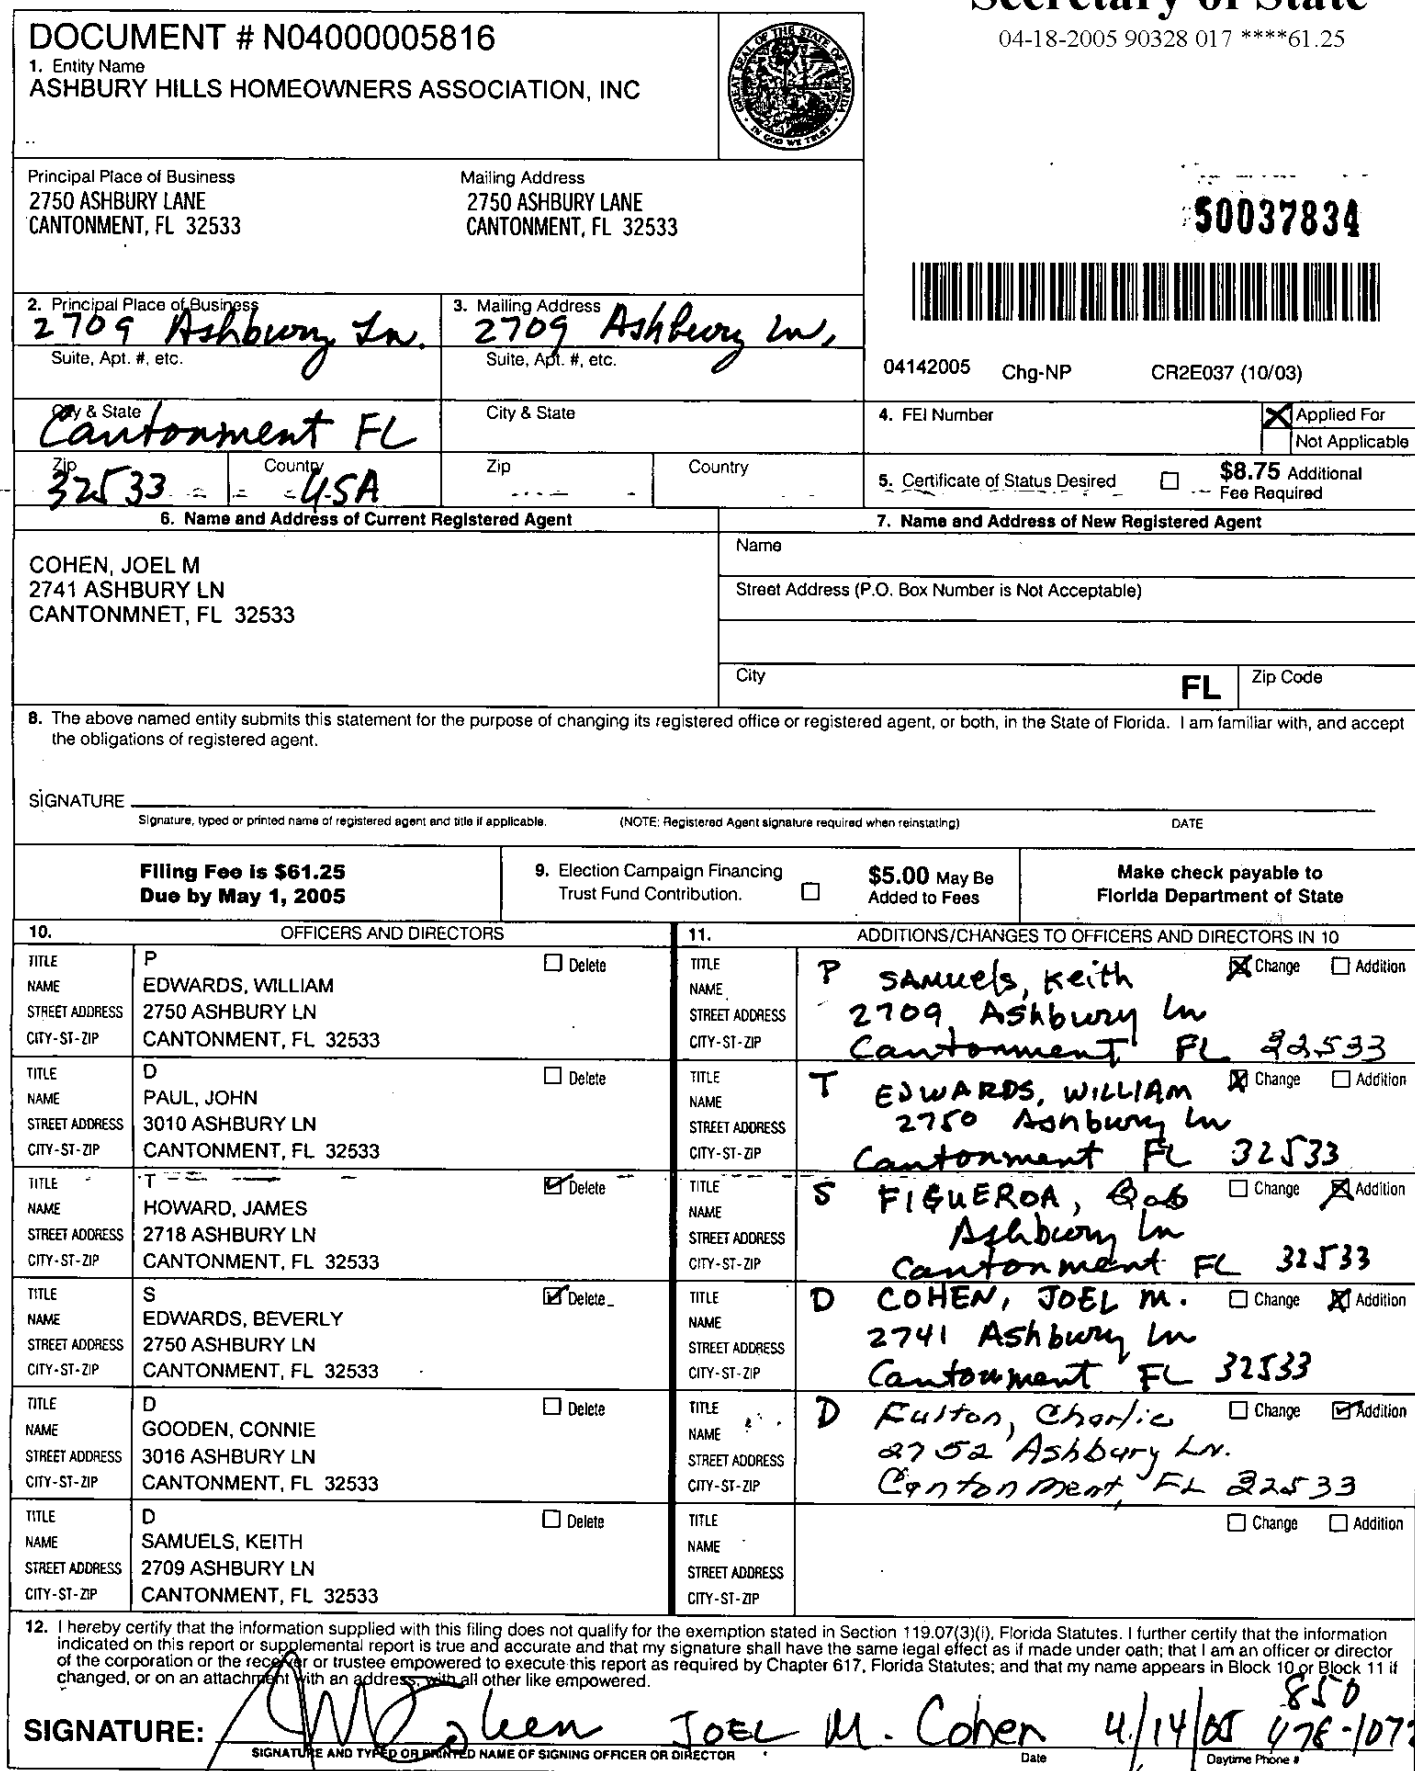 Secretary of State
04-18-2005 90328 017 ****61.25
DOCUMENT # N04000005816
1. Entity Name
ASHBURY HILLS HOMEOWNERS ASSOCIATION, INC
GREAT SEAL OF THE STATE OF FLORIDA
IN GOD WE TRUST
Principal Place of Business
2750 ASHBURY LANE
CANTONMENT, FL 32533
Mailing Address
2750 ASHBURY LANE
CANTONMENT, FL 32533
50037834
2. Principal Place of Business
2709 Ashbury Ln.
3. Mailing Address
2709 Ashbury Ln,
Suite, Apt. #, etc.
Suite, Apt. #, etc.
04142005 Chg-NP CR2E037 (10/03)
City & State
Cantonment FL
City & State
4. FEI Number
Applied For
Not Applicable
Zip
32533
Country
USA
Zip
Country
5. Certificate of Status Desired
$8.75 Additional
Fee Required
6. Name and Address of Current Registered Agent
7. Name and Address of New Registered Agent
COHEN, JOEL M
2741 ASHBURY LN
CANTONMNET, FL 32533
Name
Street Address (P.O. Box Number is Not Acceptable)
City
FL
Zip Code
8. The above named entity submits this statement for the purpose of changing its registered office or registered agent, or both, in the State of Florida. I am familiar with, and accept
the obligations of registered agent.
SIGNATURE
Signature, typed or printed name of registered agent and title if applicable. (NOTE: Registered Agent signature required when reinstating) DATE
Filing Fee is $61.25
Due by May 1, 2005
9. Election Campaign Financing
Trust Fund Contribution.
$5.00 May Be
Added to Fees
Make check payable to
Florida Department of State
10. OFFICERS AND DIRECTORS
11. ADDITIONS/CHANGES TO OFFICERS AND DIRECTORS IN 10
TITLE P Delete
NAME EDWARDS, WILLIAM
STREET ADDRESS 2750 ASHBURY LN
CITY-ST-ZIP CANTONMENT, FL 32533
TITLE P Change Addition
NAME SAMUELS, Keith
STREET ADDRESS 2709 Ashbury Ln
CITY-ST-ZIP Cantonment FL 32533
TITLE D Delete
NAME PAUL, JOHN
STREET ADDRESS 3010 ASHBURY LN
CITY-ST-ZIP CANTONMENT, FL 32533
TITLE T Change Addition
NAME EDWARDS, WILLIAM
STREET ADDRESS 2750 Ashbury Ln
CITY-ST-ZIP Cantonment FL 32533
TITLE T Delete
NAME HOWARD, JAMES
STREET ADDRESS 2718 ASHBURY LN
CITY-ST-ZIP CANTONMENT, FL 32533
TITLE S Change Addition
NAME FIGUEROA, Bob
STREET ADDRESS Ashbury Ln
CITY-ST-ZIP Cantonment FL 32533
TITLE S Delete
NAME EDWARDS, BEVERLY
STREET ADDRESS 2750 ASHBURY LN
CITY-ST-ZIP CANTONMENT, FL 32533
TITLE D Change Addition
NAME COHEN, JOEL M.
STREET ADDRESS 2741 Ashbury Ln
CITY-ST-ZIP Cantonment FL 32533
TITLE D Delete
NAME GOODEN, CONNIE
STREET ADDRESS 3016 ASHBURY LN
CITY-ST-ZIP CANTONMENT, FL 32533
TITLE D Change Addition
NAME Fulton, Charlie
STREET ADDRESS 2752 Ashbury Ln.
CITY-ST-ZIP Cantonment, FL 32533
TITLE D Delete
NAME SAMUELS, KEITH
STREET ADDRESS 2709 ASHBURY LN
CITY-ST-ZIP CANTONMENT, FL 32533
TITLE Change Addition
NAME
STREET ADDRESS
CITY-ST-ZIP
12. I hereby certify that the information supplied with this filing does not qualify for the exemption stated in Section 119.07(3)(i), Florida Statutes. I further certify that the information
indicated on this report or supplemental report is true and accurate and that my signature shall have the same legal effect as if made under oath; that I am an officer or director
of the corporation or the receiver or trustee empowered to execute this report as required by Chapter 617, Florida Statutes; and that my name appears in Block 10 or Block 11 if
changed, or on an attachment with an address, with all other like empowered.
850
SIGNATURE: JM Cohen JOEL M. Cohen 4/14/05 478-1072
SIGNATURE AND TYPED OR PRINTED NAME OF SIGNING OFFICER OR DIRECTOR Date Daytime Phone #